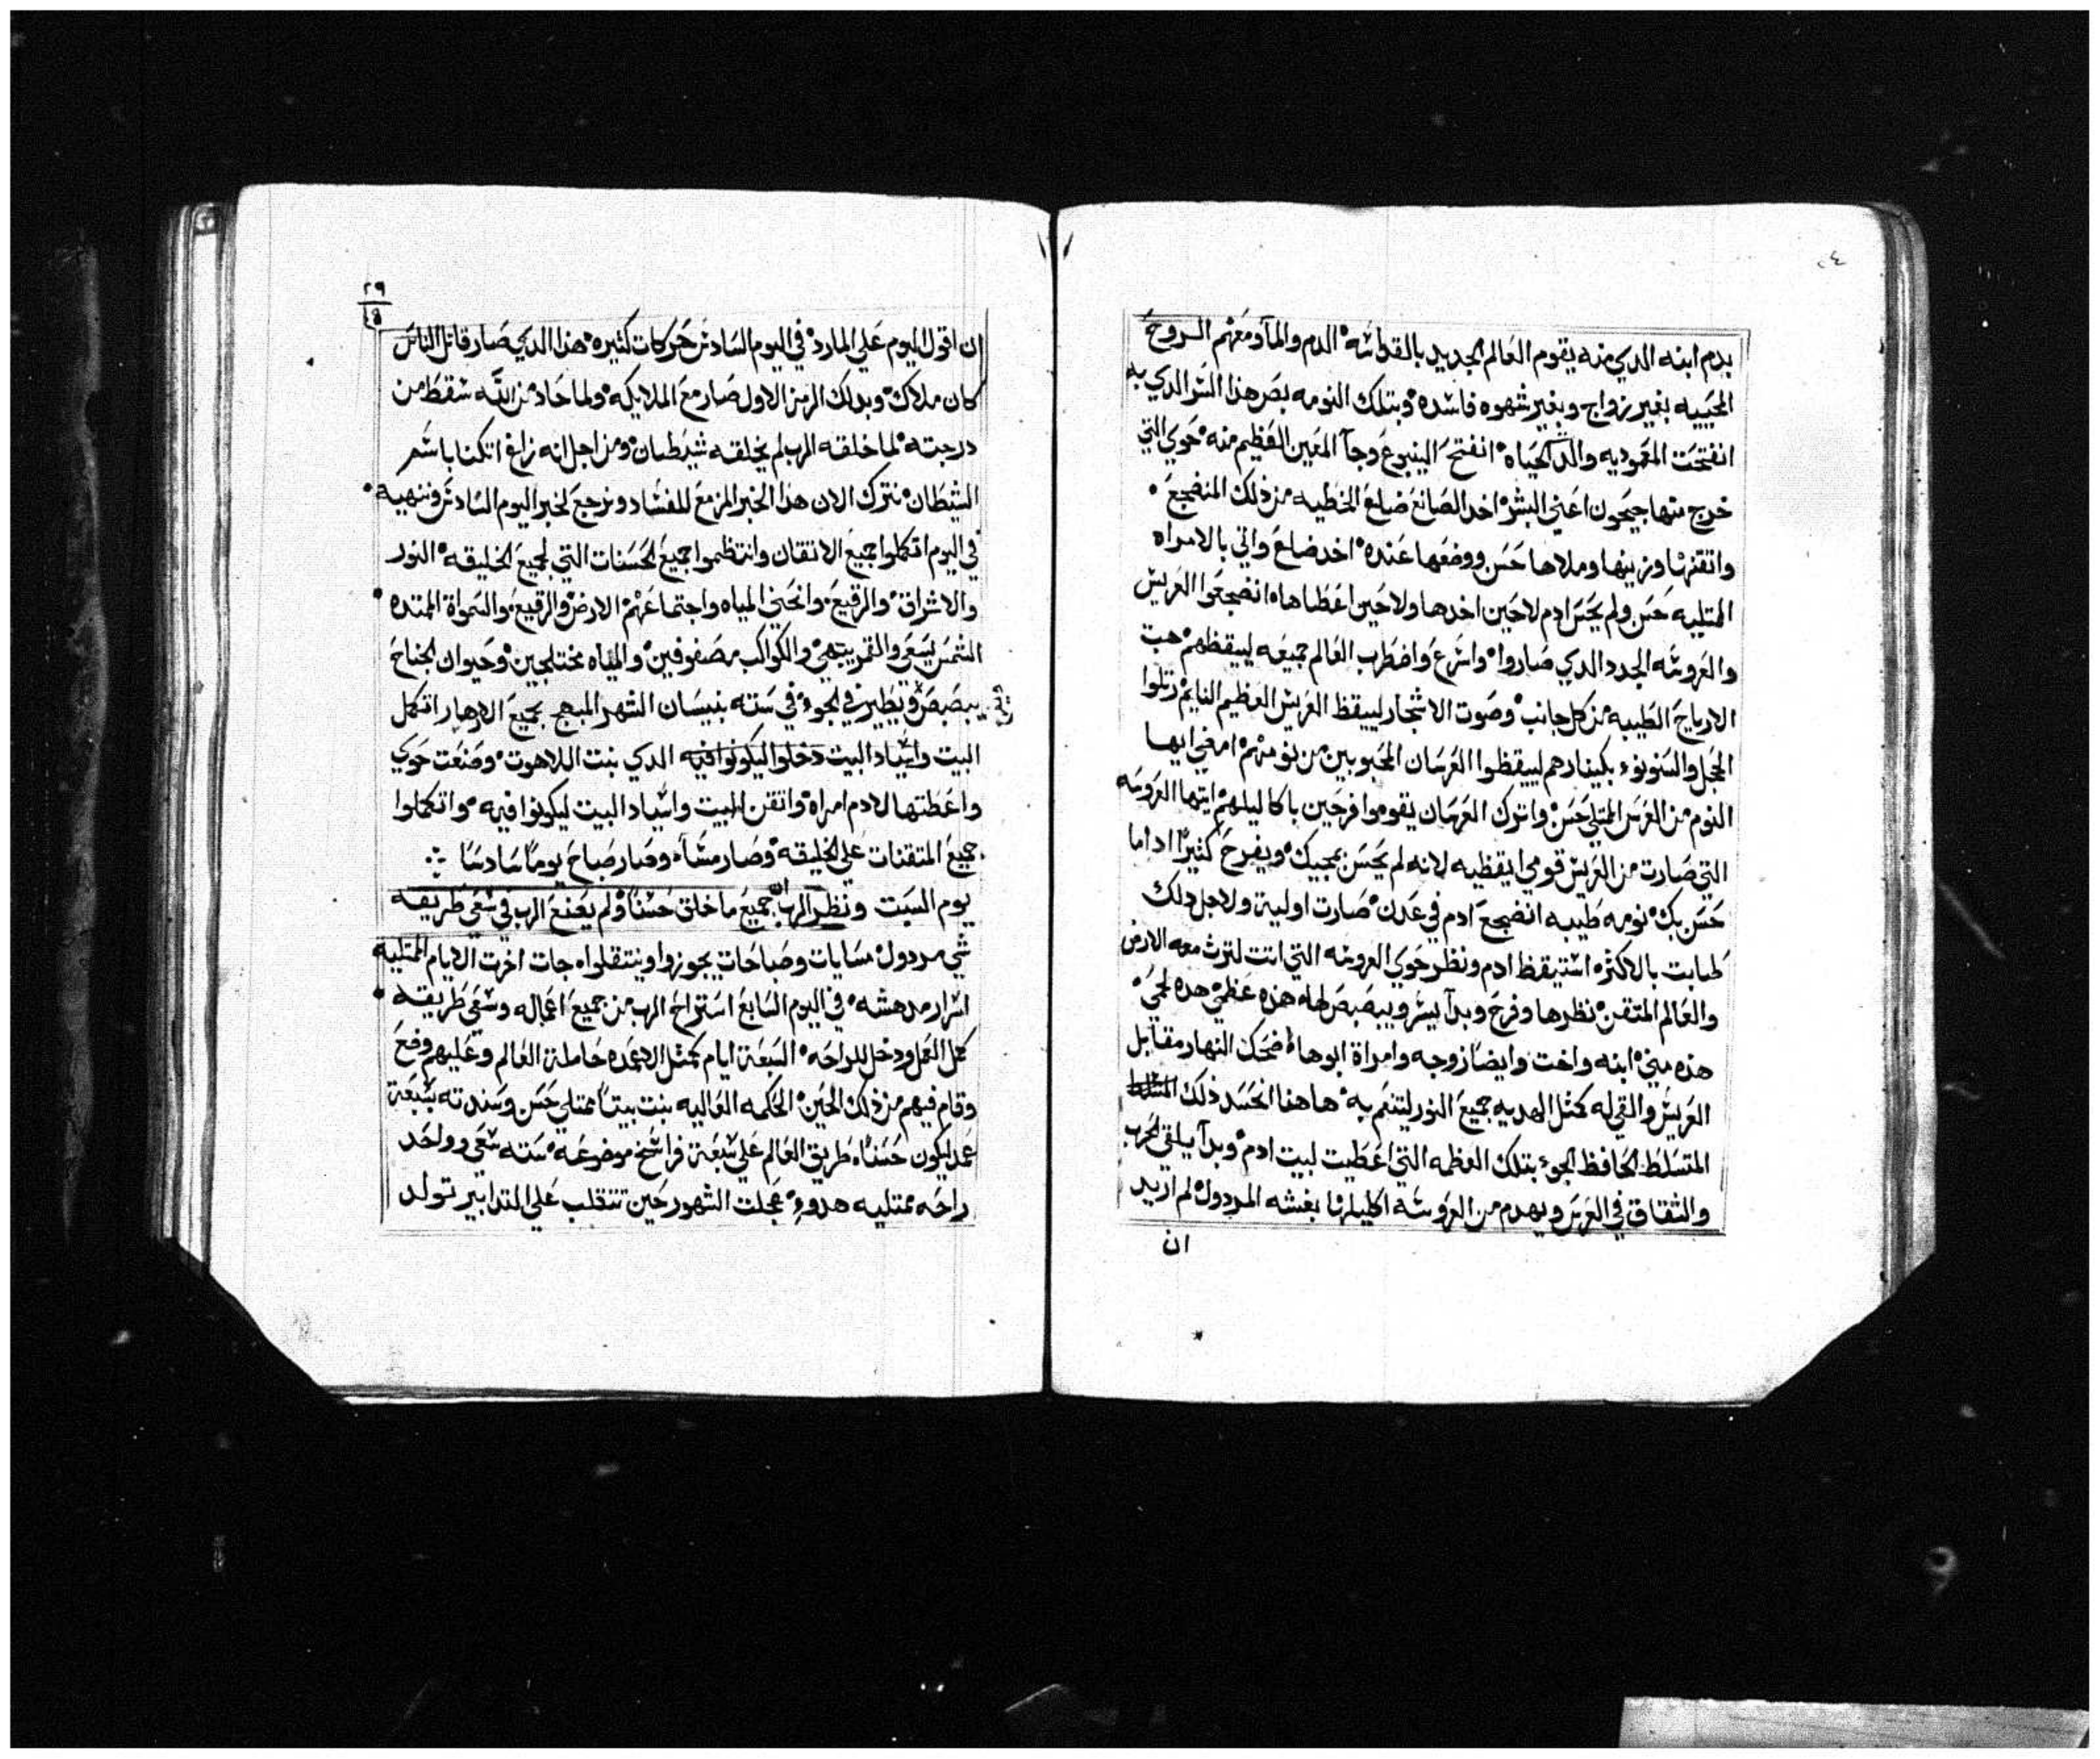 بدم ابنه الدي منه يقوم العالم الجديد بالقداسه الدم والمآ ومعهم الروح
المحييه بغير زواج وبغير شهوه فاسده وبتلك النومه بصر هذا السر الدي به
انفتحت المعموديه والد الحياه انفتح الينبوع وجآ المعين العظيم منه حوي التي
خرج منها جيحون اعني البشر اخد الصانع ضلع الخطيه من ذلك المنضجع
واتقنها وزينها وملاها حسن ووضعها عنده اخد ضلع واتي بالامراه
المتليه حسن ولم يحس ادم لا حين اخدها ولا حين اعطاها انضجعوا العريس
والعروسه الجدد الدي صاروا واسرع واضطرب العالم جميعه ليبقظهم هبت
الارياح الطيبه من كل جانب وصوت الاشجار ليبقظ العريس العظيم النايم رتلوا
الحجل والسنونو بكينارهم ليبقظوا العرسان المحبوبين من نومهم امضي ايها
النوم من العرس المتلي حسن واترك العرسان يقوموا فرحين باكاليلهم ايتها العروسه
التي صارت من العريس قومي ايقظيه لانه لم يحس بمجيك ويفرح كثيرًا ادا ما
حس بك نومه طيبه انضجع ادم في عدن صارت اوليه ولاجل دلك
طابت بالاكثره استيقظ ادم ونظر حوي العروسه التي اتت لترث معه الارض
والعالم المتقن نظرها وفرح وبدآ يسر ويبصبص لها هذه عظمي هده لحمي
هذه مني ابنه واخت وايضا زوجه وامراة ابوها ضحك النهار مقابل
العريس والقي له كمثل الهديه جميع النور ليتنعم به هاهنا انحسد ذلك
المتسلط الحافظ الجو بتلك العظمه التي اعطيت لبيت ادم وبدآ يلقي الحرب
والشقاق في العرس ويهدم من العروسه اكليلها بغشه المردول لم اريد
ان
٢٩
ان اقول اليوم علي المارد في اليوم السادس حركات كثيره هذا الدي صار قاتل الناس
كان ملاك وبدلك الرمز الاول صار مع الملايكه ولما حاد من الله سقط من
درجته لما خلقه الرب لم يخلقه شيطان ومن اجل انه زاغ اتكنا باسم
الشيطان نترك الان هذا الخبر المزمع للفساد ونرجع لخبر اليوم السادس وننهيه
في اليوم اتكملوا جميع الاتقان وانتظموا جميع الحسنات التي لجميع الخليقه النور
والاشراق والرقيع وانحني المياه واجتماعهم الارض والرقيع والسمواة الممتده
الشمس يسعي والقمر يبتهي والكواكب مصفوفين والمياه مختلجين وحيوان الجناح
يبصبص ويطير في الجو في سته بنيسان الشهر المبهج بجميع الازهار اتكمل
البيت واسياد البيت دخلوا ليكونوا فيه الدي بنت اللاهوت وصنعت حوي
واعطتها لادم امراه واتقن البيت واسياد البيت ليكونوا فيه واتكملوا
جميع المتقنات علي الخليقه وصار مسآء وصار صباح يومًا سادسًا
يوم السبت ونظر الرب ان جميع ما خلق حسنًا ولم يصنع الرب في سعي طريقه
شي مردول مسايات وصباحات يجوزوا وينتقلوا جات اخرت الايام الممتلية
اسرار مدهشه في اليوم السابع استراح الرب من جميع اعماله وسعي طريقه
كمل العمل ودخل للراحه السبعة ايام كمثل الاعمده حاملة العالم وعليهم وضع
وقام فيهم من ذلك الحين الحكمه العاليه بنت بيتًا ممتلي حسن وسندته بسبعة
عمد ليكون حسنًا طريق العالم علي سبعة فراسخ موضوعه سته سعي وواحد
راحه ممتليه هدوء عجلت الشهور حين تنقلب علي التدابير تولد